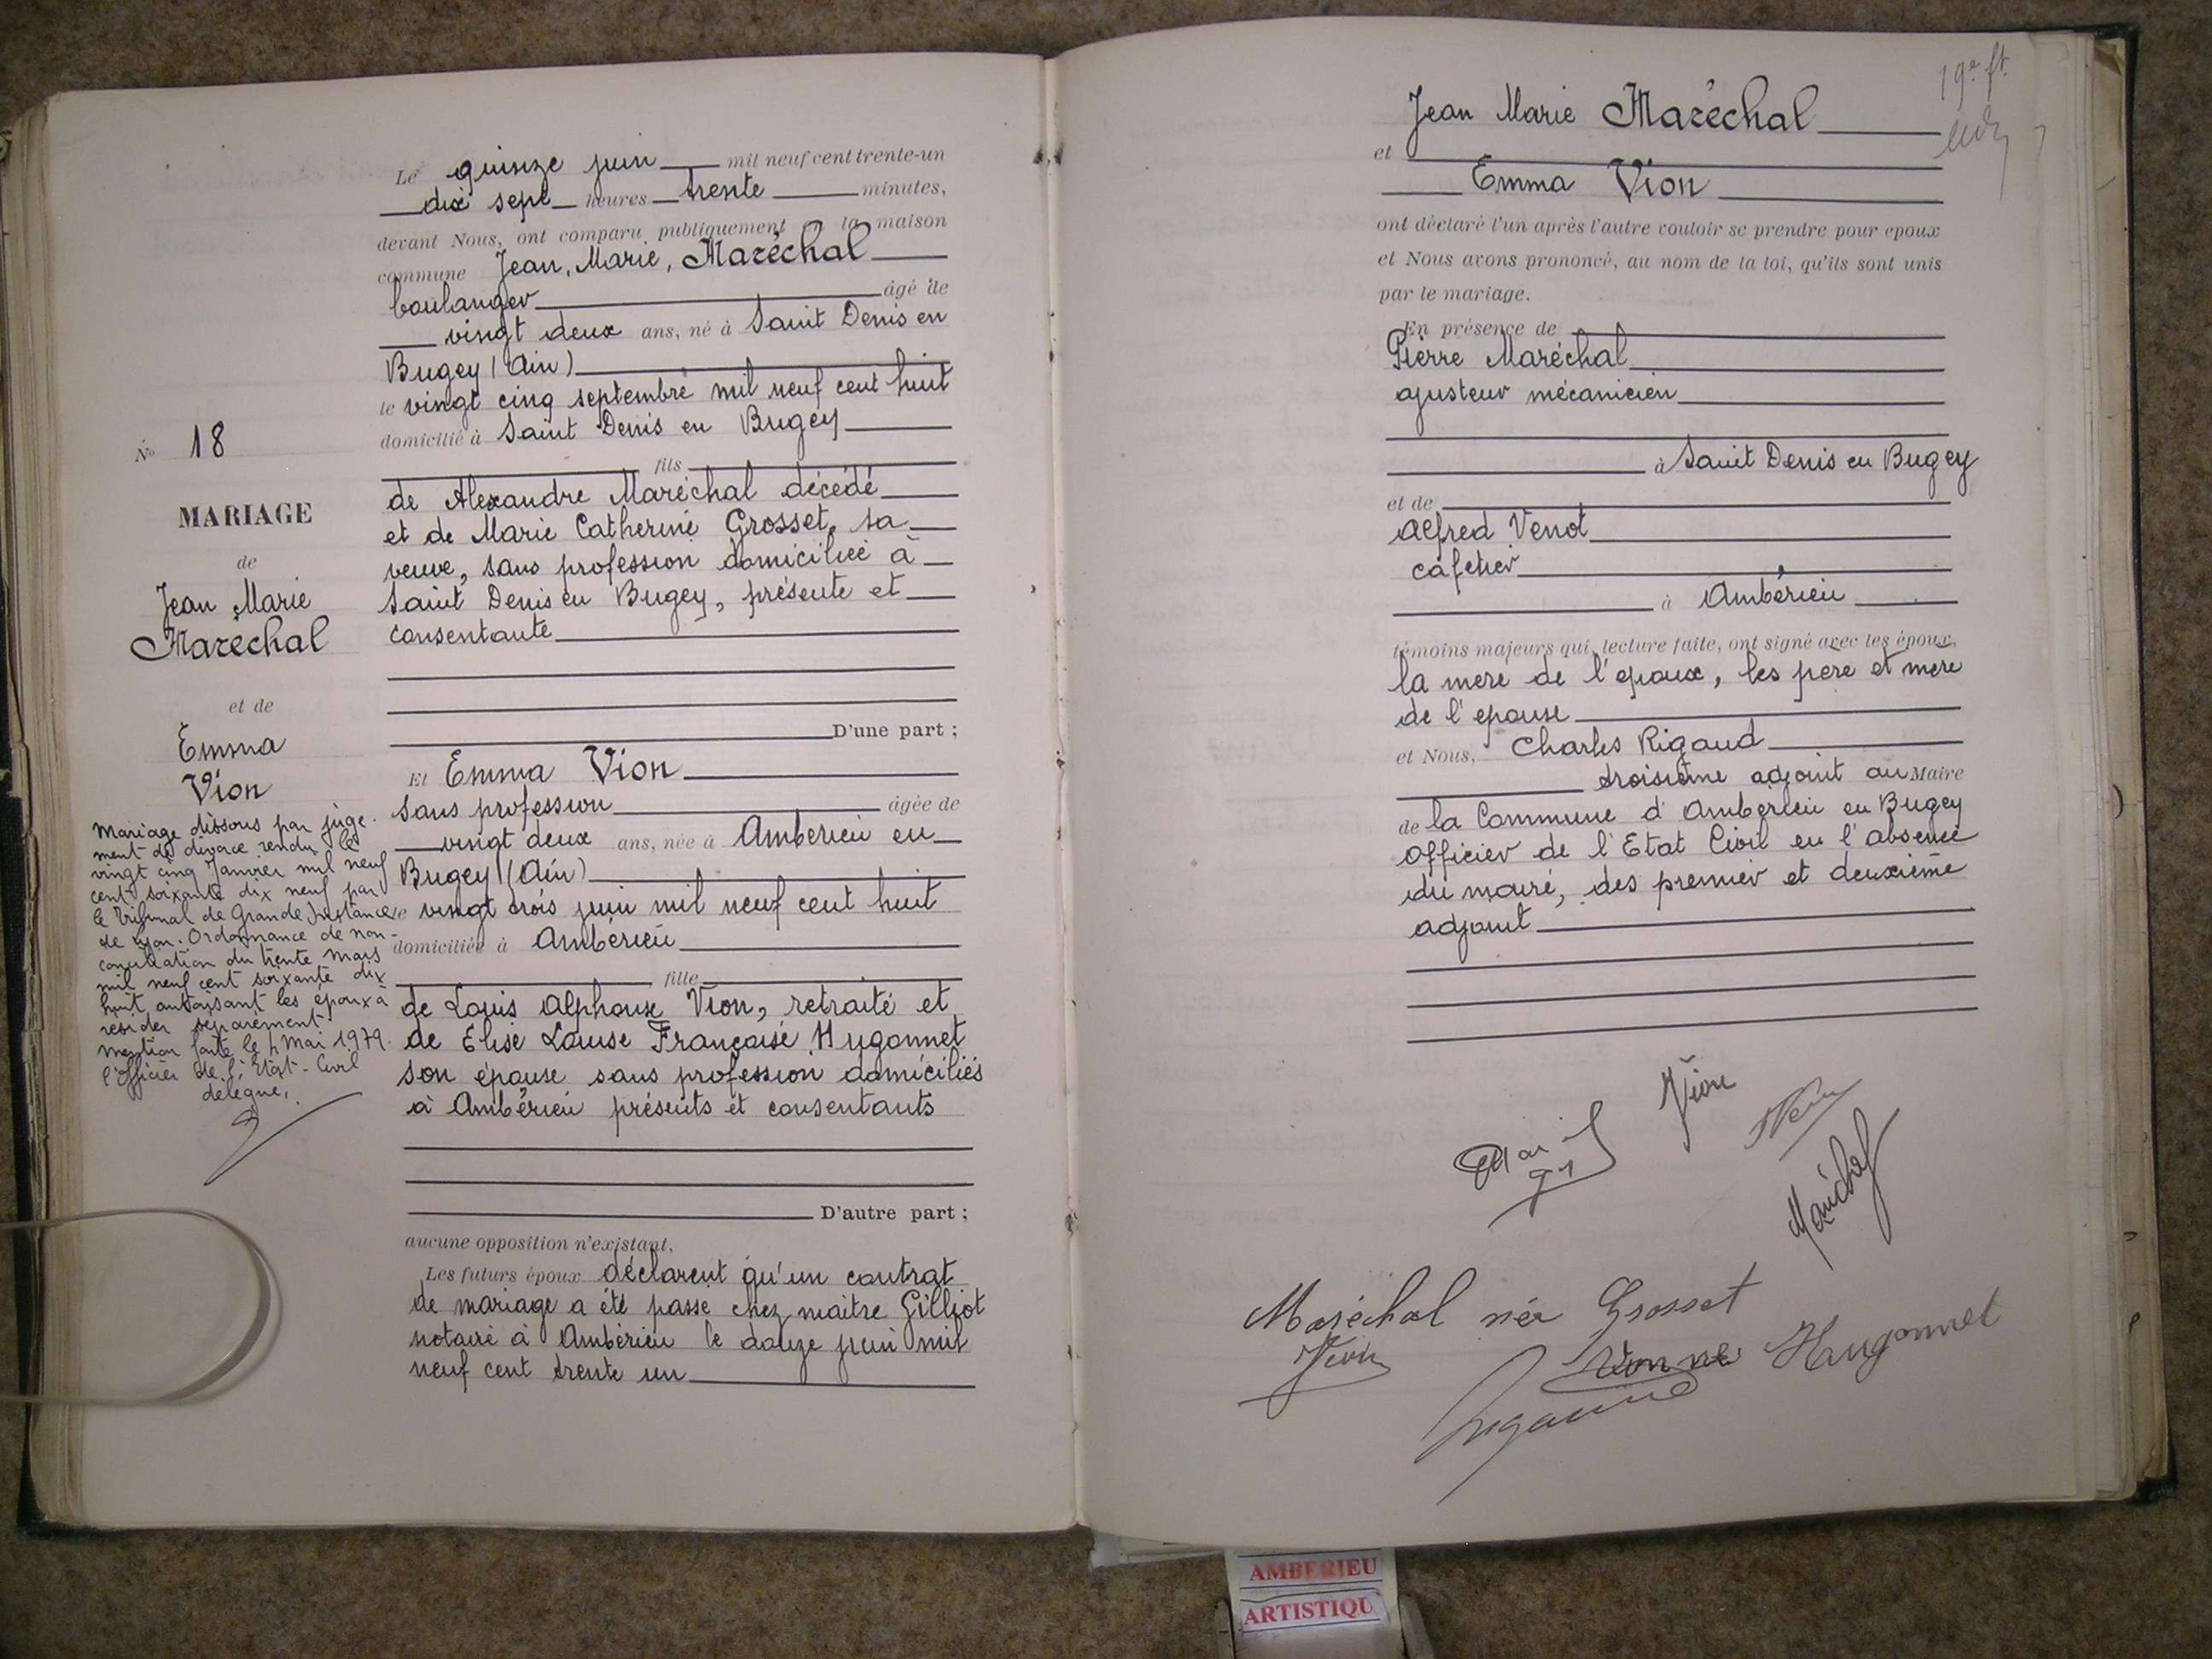 N° 18
MARIAGE
de
Jean Marie
Maréchal
et de
Emma
Vion
Mariage dissous par juge-
ment de divorce rendu le
vingt cinq Janvier mil neuf
cent soixante dix neuf par
le Tribunal de Grande Instance
de Lyon. Ordonnance de non-
conciliation du trente Mars
mil neuf cent soixante dix
huit autorisant les époux à
résider séparément
mention faite le 4 Mai 1979.
l'Officier de l'Etat-Civil
délégué,
Le quinze juin mil neuf cent trente-un
dix sept heures trente minutes,
devant Nous, ont comparu publiquement à la maison
commune Jean, Marie, Maréchal
boulanger âgé de
vingt deux ans, né à Saint Denis en
Bugey (Ain)
le vingt cinq septembre mil neuf cent huit
domicilié à Saint Denis en Bugey
fils
de Alexandre Maréchal décédé
et de Marie Catherine Grosset, sa
veuve, sans profession domiciliée à
Saint Denis en Bugey, présente et
consentante
D'une part ;
Et Emma Vion
sans profession âgée de
vingt deux ans, née à Amberieu en
Bugey (Ain)
le vingt trois juin mil neuf cent huit
domiciliée à Ambérieu
fille
de Louis Alphonse Vion, retraité et
de Elise Louise Françoise Hugonnet
son épouse sans profession domiciliés
à Ambérieu présents et consentants
D'autre part ;
aucune opposition n'existant,
Les futurs époux déclarent qu'un contrat
de mariage a été passé chez maitre Gilliot
notaire à Ambérieu le douze juin mil
neuf cent trente un
19e ft.
Jean Marie Maréchal
et
Emma Vion
ont déclaré l'un après l'autre vouloir se prendre pour époux
et Nous avons prononcé, au nom de la loi, qu'ils sont unis
par le mariage.
En présence de
Pierre Maréchal
ajusteur mécanicien
à Saint Denis en Bugey
et de
Alfred Venot
cafetier
à Ambérieu
témoins majeurs qui, lecture faite, ont signé avec les époux,
la mere de l'epoux, les pere et mere
de l'epouse
et Nous, Charles Rigaud
troisième adjoint au Maire
de la Commune d'Ambérieu en Bugey
Officier de l'Etat Civil en l'absence
du maire, des premier et deuxième
adjoint
Vion
Maréchal
Maréchal née Grosset
Vion
Hugonnet
AMBERIEU
ARTISTIQU